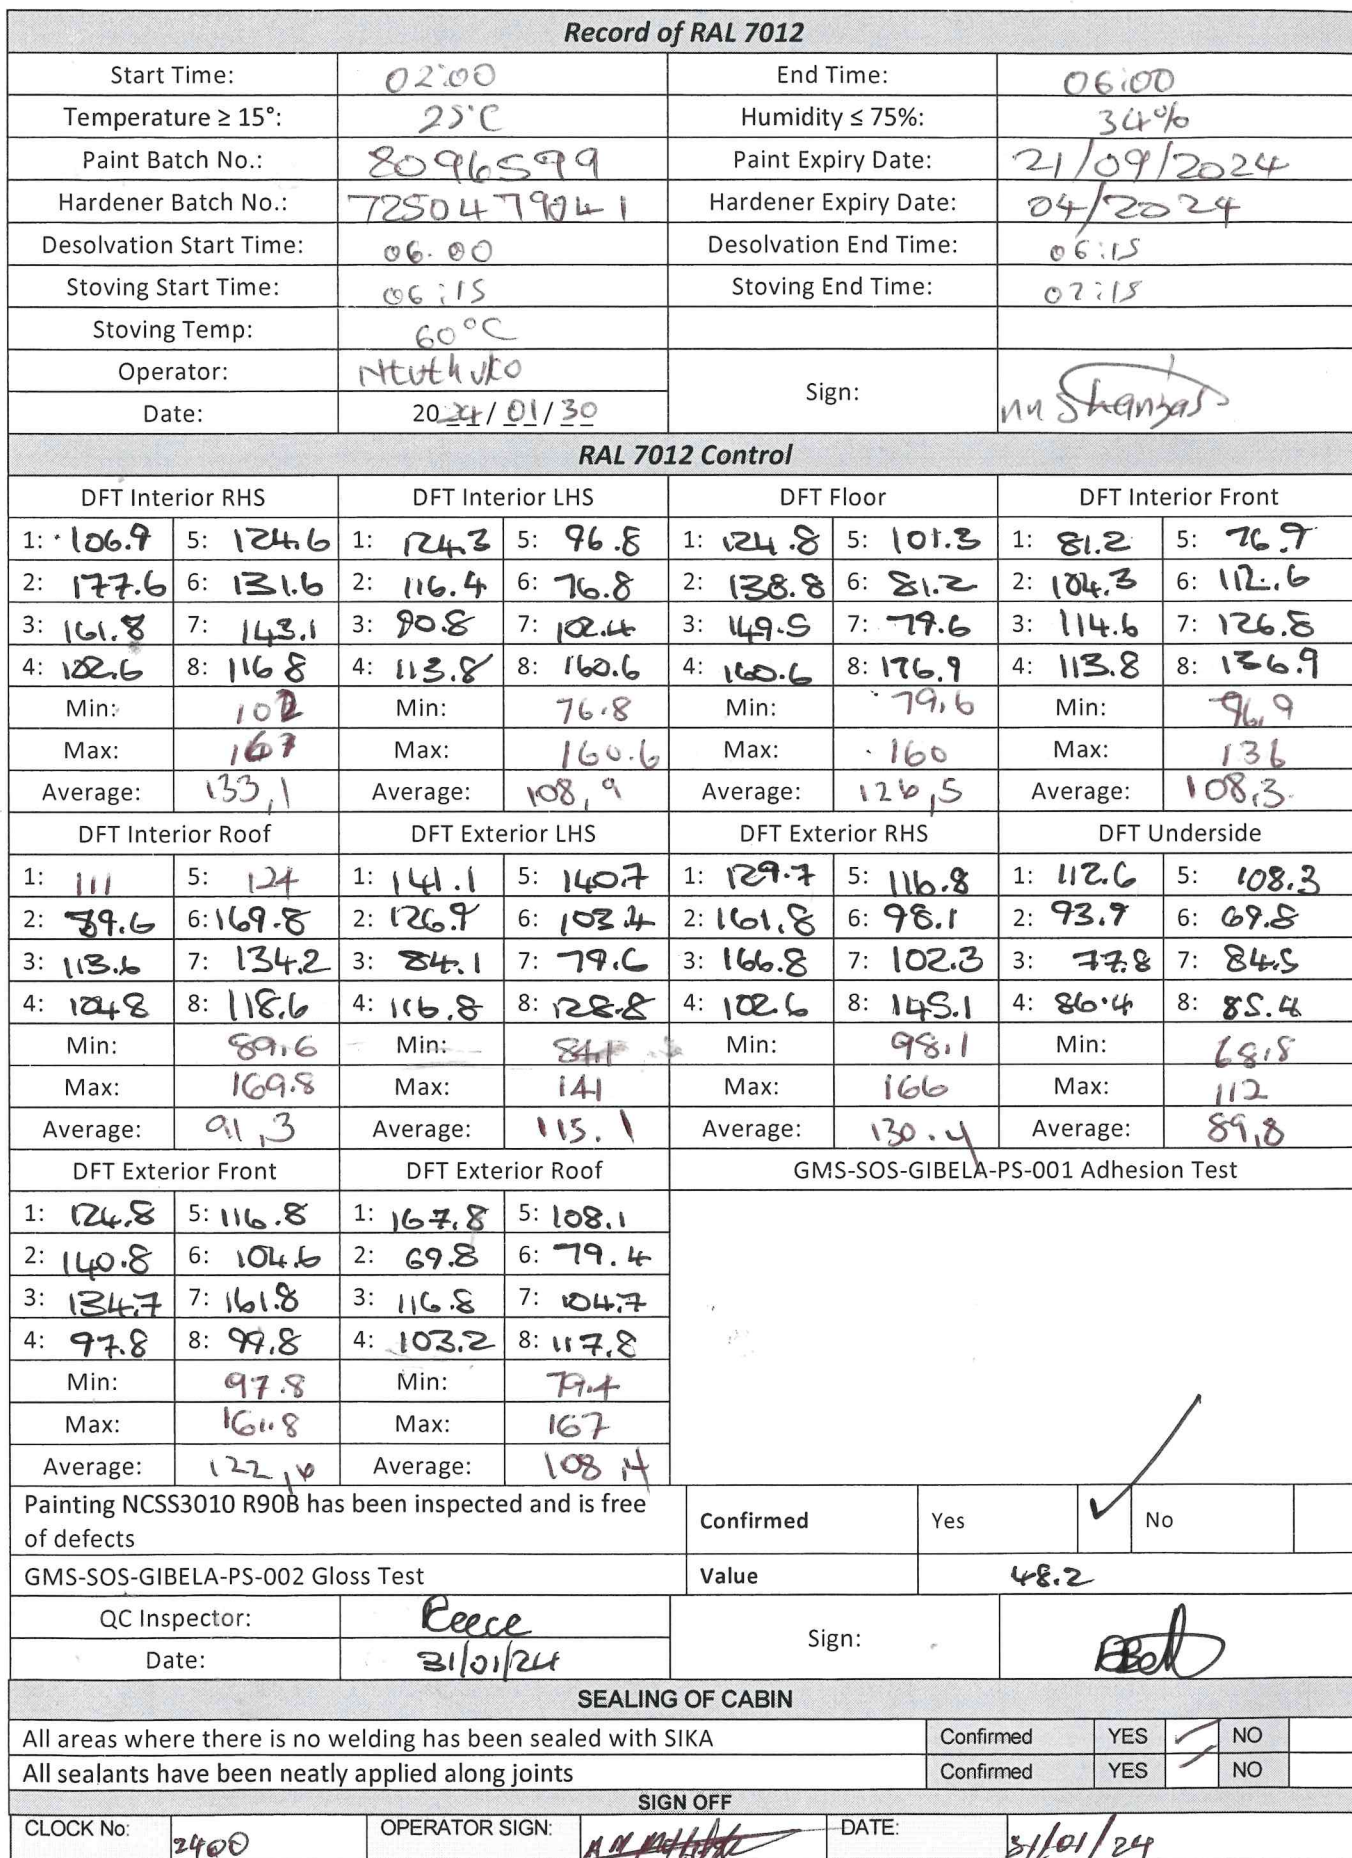 Record of RAL 7012
Start Time: 02:00 End Time: 06:00
Temperature ≥ 15°: 25°C Humidity ≤ 75%: 34%
Paint Batch No.: 8096599 Paint Expiry Date: 21/09/2024
Hardener Batch No.: 7250479041 Hardener Expiry Date: 04/2024
Desolvation Start Time: 06.00 Desolvation End Time: 06:15
Stoving Start Time: 06:15 Stoving End Time: 07:15
Stoving Temp: 60°C
Operator: Ntuthuko Sign:
Date: 2024/01/30
RAL 7012 Control
DFT Interior RHS DFT Interior LHS DFT Floor DFT Interior Front
1: 106.9 5: 124.6 1: 124.3 5: 96.8 1: 124.8 5: 101.3 1: 81.2 5: 76.9
2: 177.6 6: 131.6 2: 116.4 6: 76.8 2: 138.8 6: 81.2 2: 104.3 6: 112.6
3: 161.8 7: 143.1 3: 90.8 7: 102.4 3: 149.5 7: 79.6 3: 114.6 7: 126.8
4: 102.6 8: 116.8 4: 113.8 8: 160.6 4: 160.6 8: 176.9 4: 113.8 8: 136.9
Min: 102 Min: 76.8 Min: 79,6 Min: 96,9
Max: 167 Max: 160.6 Max: 160 Max: 136
Average: 133,1 Average: 108,9 Average: 126,5 Average: 108,3
DFT Interior Roof DFT Exterior LHS DFT Exterior RHS DFT Underside
1: 111 5: 124 1: 141.1 5: 140.7 1: 129.7 5: 116.8 1: 112.6 5: 108.3
2: 89.6 6: 169.8 2: 126.9 6: 103.4 2: 161.8 6: 98.1 2: 93.9 6: 69.8
3: 113.6 7: 134.2 3: 84.1 7: 79.6 3: 166.8 7: 102.3 3: 77.8 7: 84.5
4: 104.8 8: 118.6 4: 116.8 8: 128.8 4: 102.6 8: 145.1 4: 86.4 8: 85.4
Min: 89,6 Min: 84.1 Min: 98.1 Min: 68,8
Max: 169.8 Max: 141 Max: 166 Max: 112
Average: 91,3 Average: 115.1 Average: 130.4 Average: 89,8
DFT Exterior Front DFT Exterior Roof GMS-SOS-GIBELA-PS-001 Adhesion Test
1: 124.8 5: 116.8 1: 167.8 5: 108.1
2: 140.8 6: 104.6 2: 69.8 6: 79.4
3: 134.7 7: 161.8 3: 116.8 7: 104.7
4: 97.8 8: 99.8 4: 103.2 8: 117.8
Min: 97.8 Min: 79.4
Max: 161.8 Max: 167
Average: 122,6 Average: 108,4
Painting NCSS3010 R90B has been inspected and is free
of defects Confirmed Yes ✓ No
GMS-SOS-GIBELA-PS-002 Gloss Test Value 48.2
QC Inspector: Reece Sign:
Date: 31/01/24
SEALING OF CABIN
All areas where there is no welding has been sealed with SIKA Confirmed YES ✓ NO
All sealants have been neatly applied along joints Confirmed YES ✓ NO
SIGN OFF
CLOCK No: 2400 OPERATOR SIGN: DATE: 31/01/24